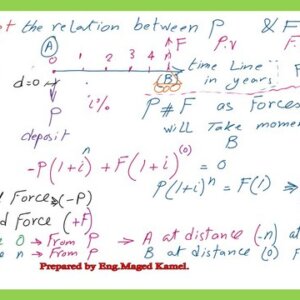 the relation between P & F
A F P.V F.
0 1 2 3 4 n time Line
d=0 B in years
P i% P # F as Forces
deposit will Take momen
B
-P(1+i)^n + F(1+i)^(0) = 0
P(1+i)^n = F(1) ⇒
Force ⇒ (-P)
Force (+F)
0 → From P → A at distance (-n) at
n → From P B at distance (0) F
Prepared by Eng.Maged Kamel.